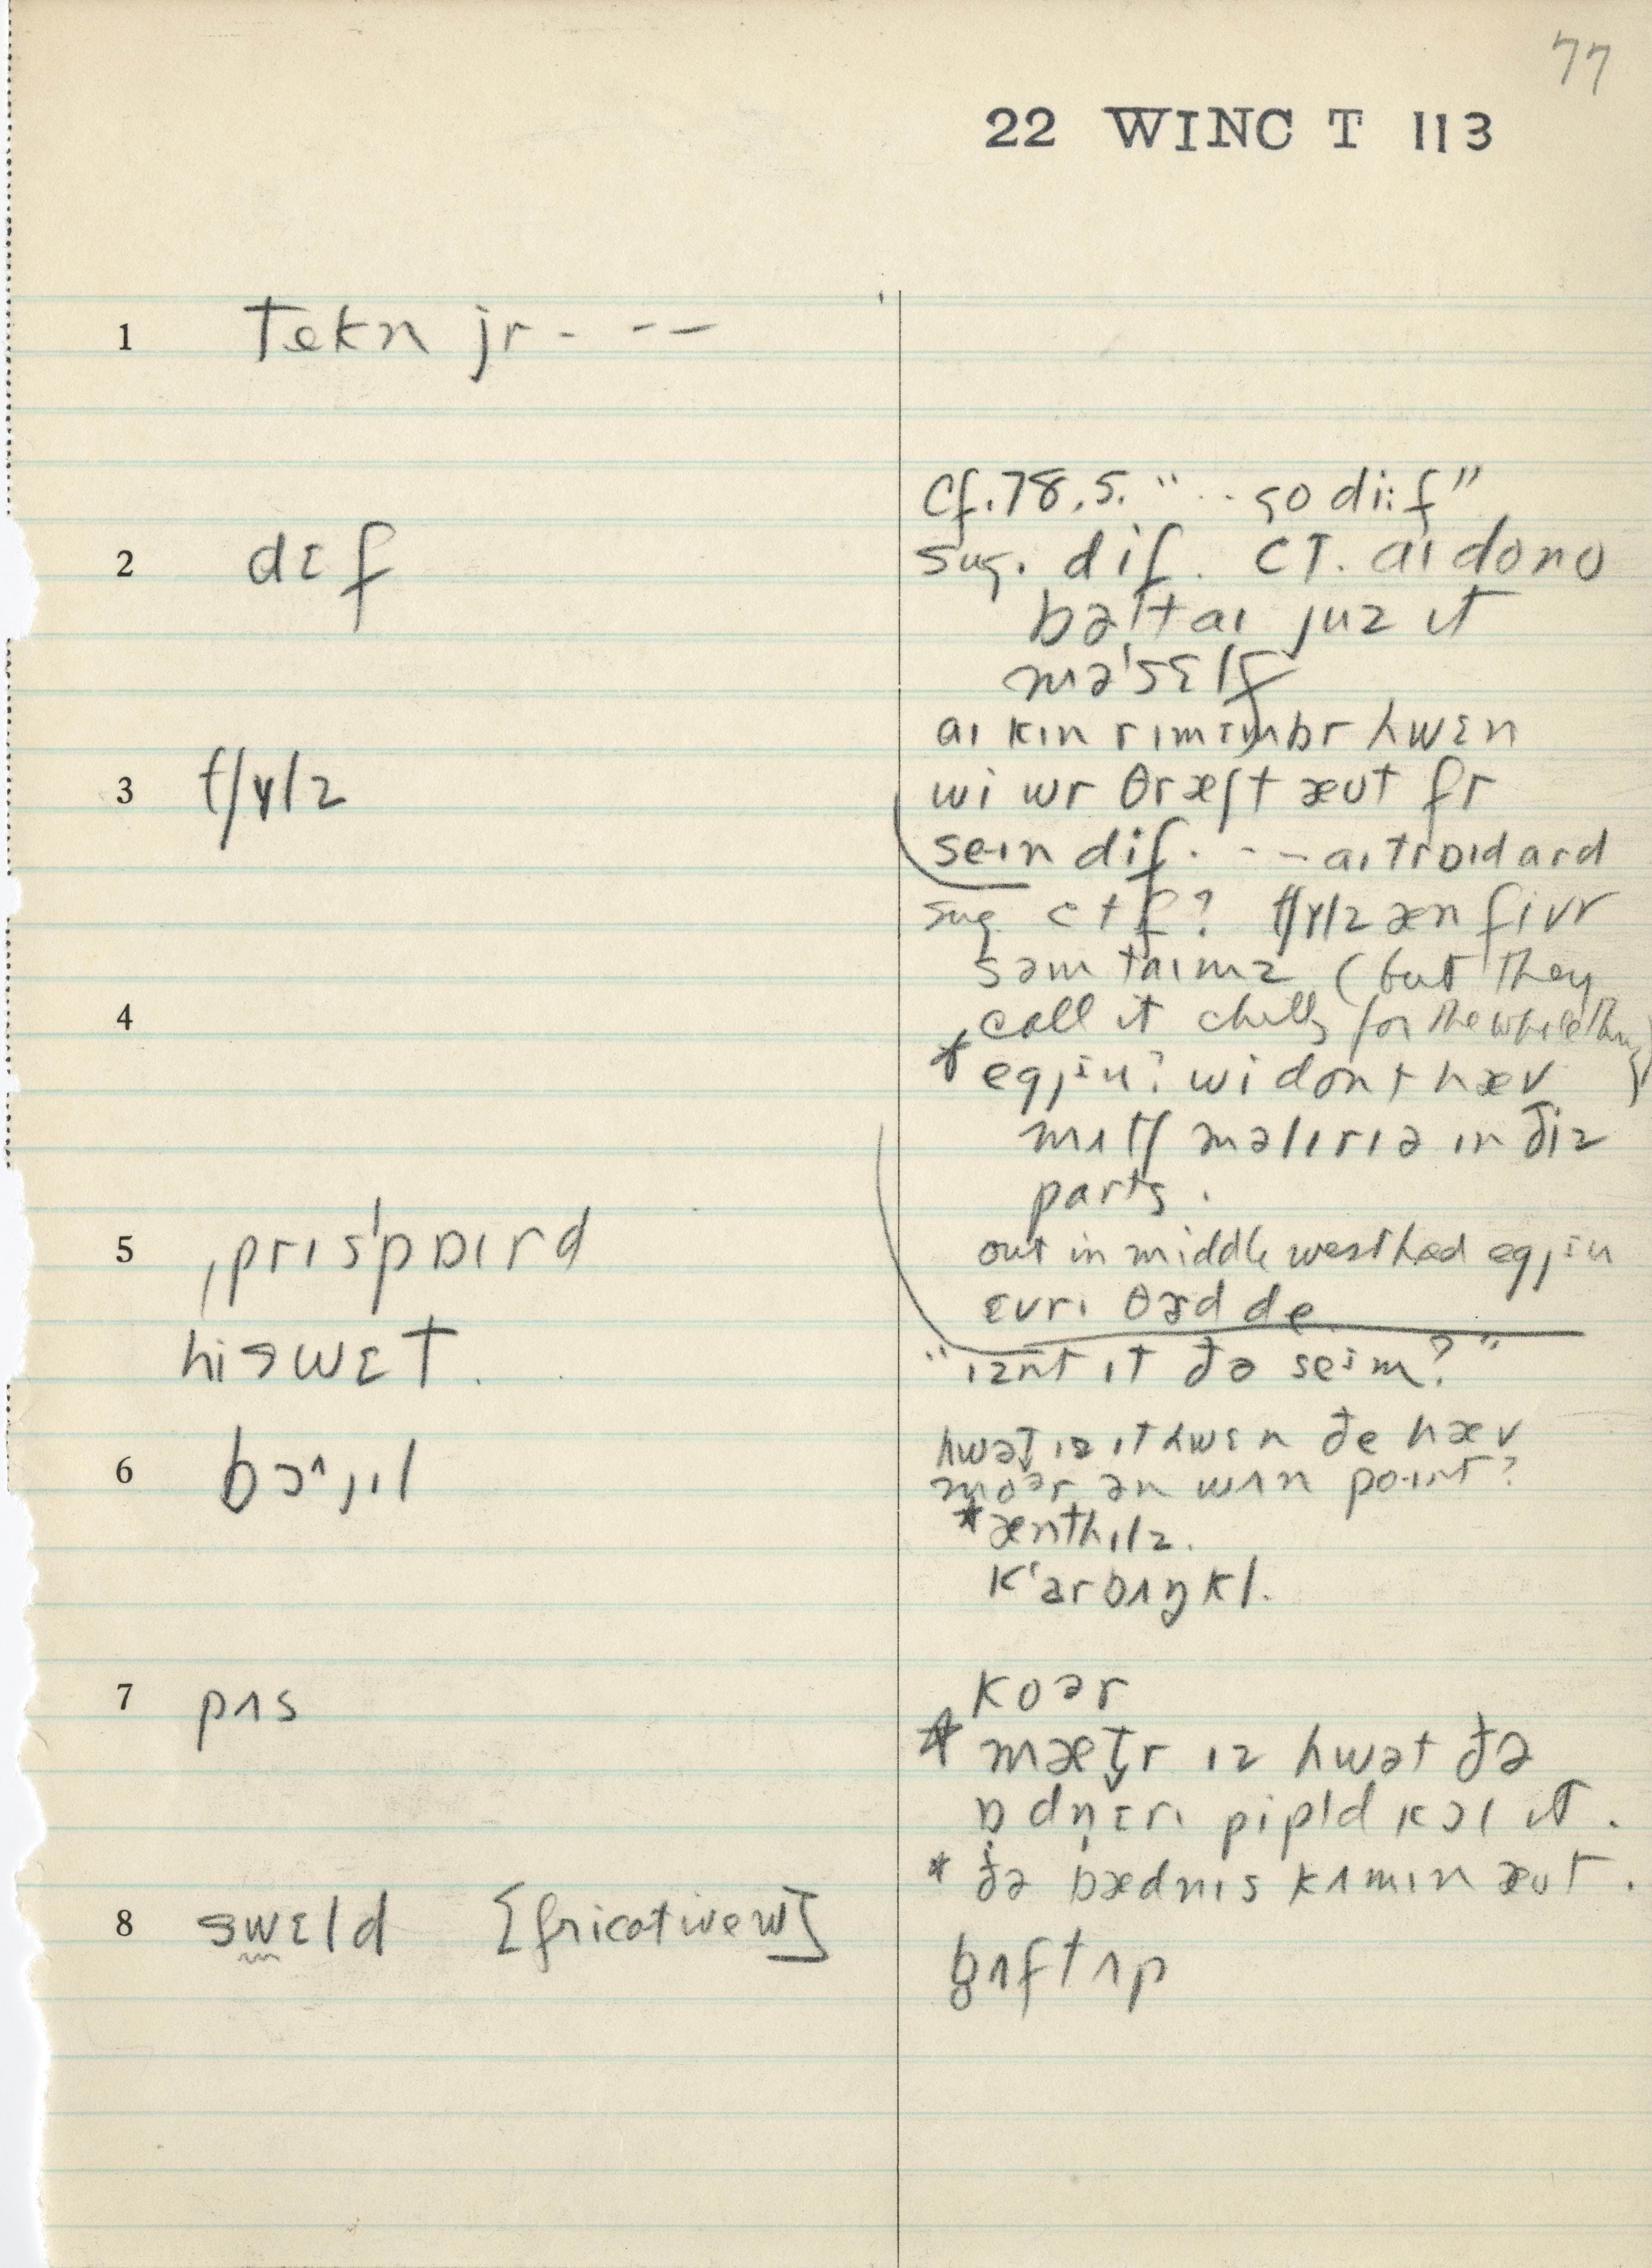 77
22 WINC T 113
1 tekn jr - - -
2 dɛf
3 tʃɤlz
4
5 ˌprɪsˈpɒɪrd
hi swɛt.
6 bɔ^ɪl
7 pʌs
8 swɛld [fricative w]
Cf. 78.5. " .. go di:f"
sug. dif. CT. aɪ dono
bətaɪ juz ɪt
məˈsɛlf
aɪ kɪn rɪmɛmbr hwɛn
wi wr θræʃt æʊt fr
sein dif. - - aɪ
sug c + f? tʃɤlz æn fivr
səmtaɪmz (but they
call it chills for the whole thing)
* egjɪu? wi dont hæv
mʌtʃ məlɪrɪə ɪn ðiz
parts.
out in middle west had egjɪu
ɛvrɪ θɜd de
"ɪznt ɪt ðə seɪm?"
hwət ɪz ɪt hwɛn ðe hæv
moər ən wʌn poɪnt?
* ænthɪlz.
kʻarbʌŋkl.
koər
* mætr ɪz hwət ðə
ɒdnɛrɪ pipl kɔl ɪt.
* ðə bædnɪs kʌmɪn æʊt.
bʌft ʌp